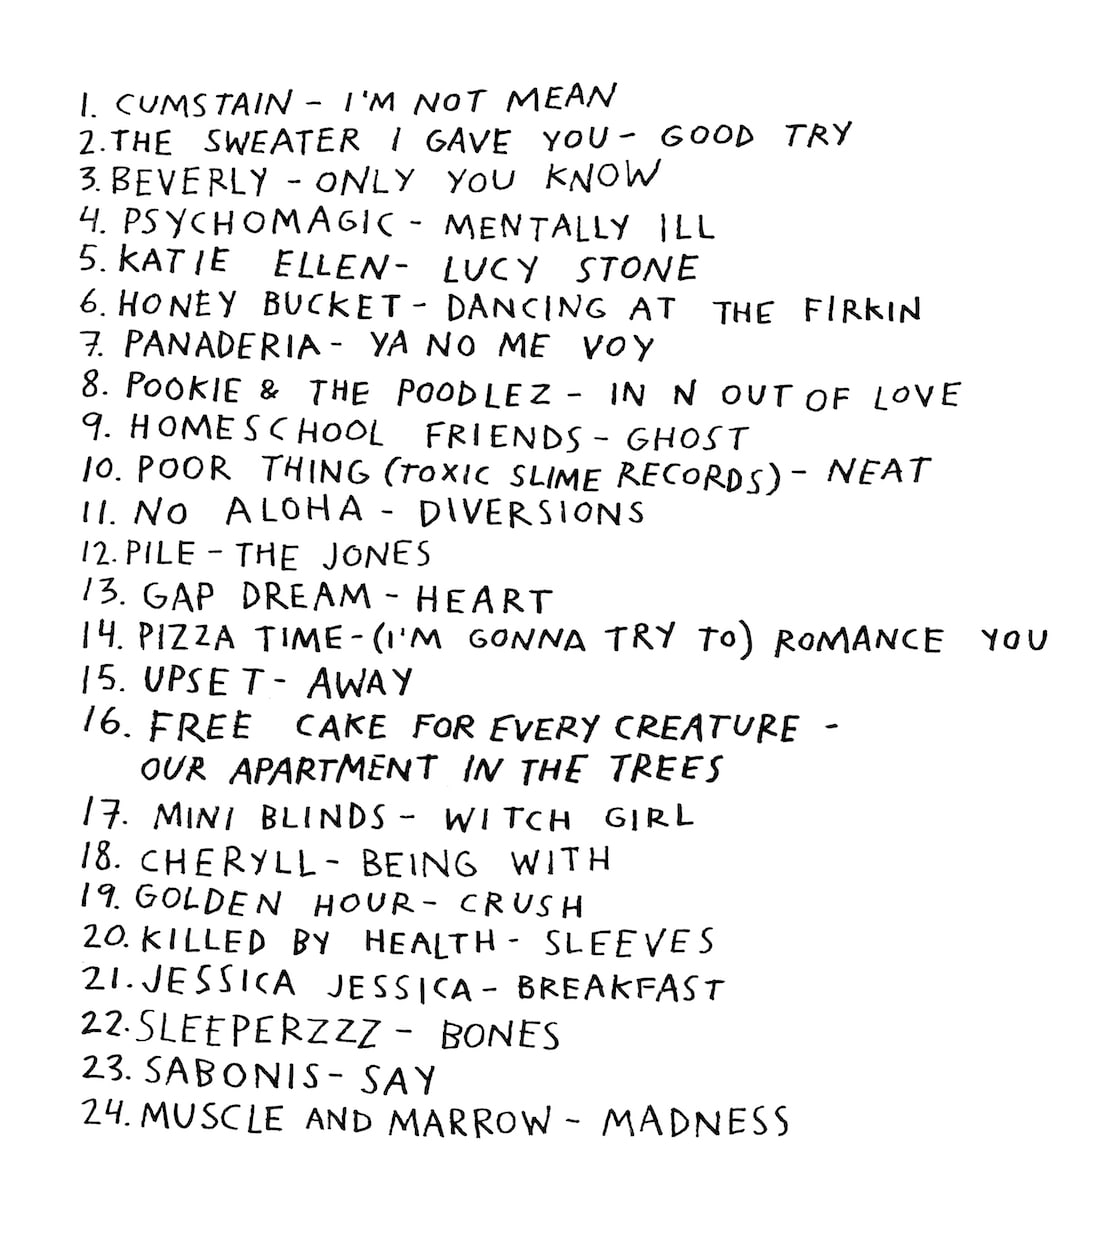 1. CUMSTAIN - I'M NOT MEAN
2. THE SWEATER I GAVE YOU - GOOD TRY
3. BEVERLY - ONLY YOU KNOW
4. PSYCHOMAGIC - MENTALLY ILL
5. KATIE ELLEN - LUCY STONE
6. HONEY BUCKET - DANCING AT THE FIRKIN
7. PANADERIA - YA NO ME VOY
8. POOKIE & THE POODLEZ - IN N OUT OF LOVE
9. HOMESCHOOL FRIENDS - GHOST
10. POOR THING (TOXIC SLIME RECORDS) - NEAT
11. NO ALOHA - DIVERSIONS
12. PILE - THE JONES
13. GAP DREAM - HEART
14. PIZZA TIME - (I'M GONNA TRY TO) ROMANCE YOU
15. UPSET - AWAY
16. FREE CAKE FOR EVERY CREATURE -
OUR APARTMENT IN THE TREES
17. MINI BLINDS - WITCH GIRL
18. CHERYLL - BEING WITH
19. GOLDEN HOUR - CRUSH
20. KILLED BY HEALTH - SLEEVES
21. JESSICA JESSICA - BREAKFAST
22. SLEEPERZZZ - BONES
23. SABONIS - SAY
24. MUSCLE AND MARROW - MADNESS